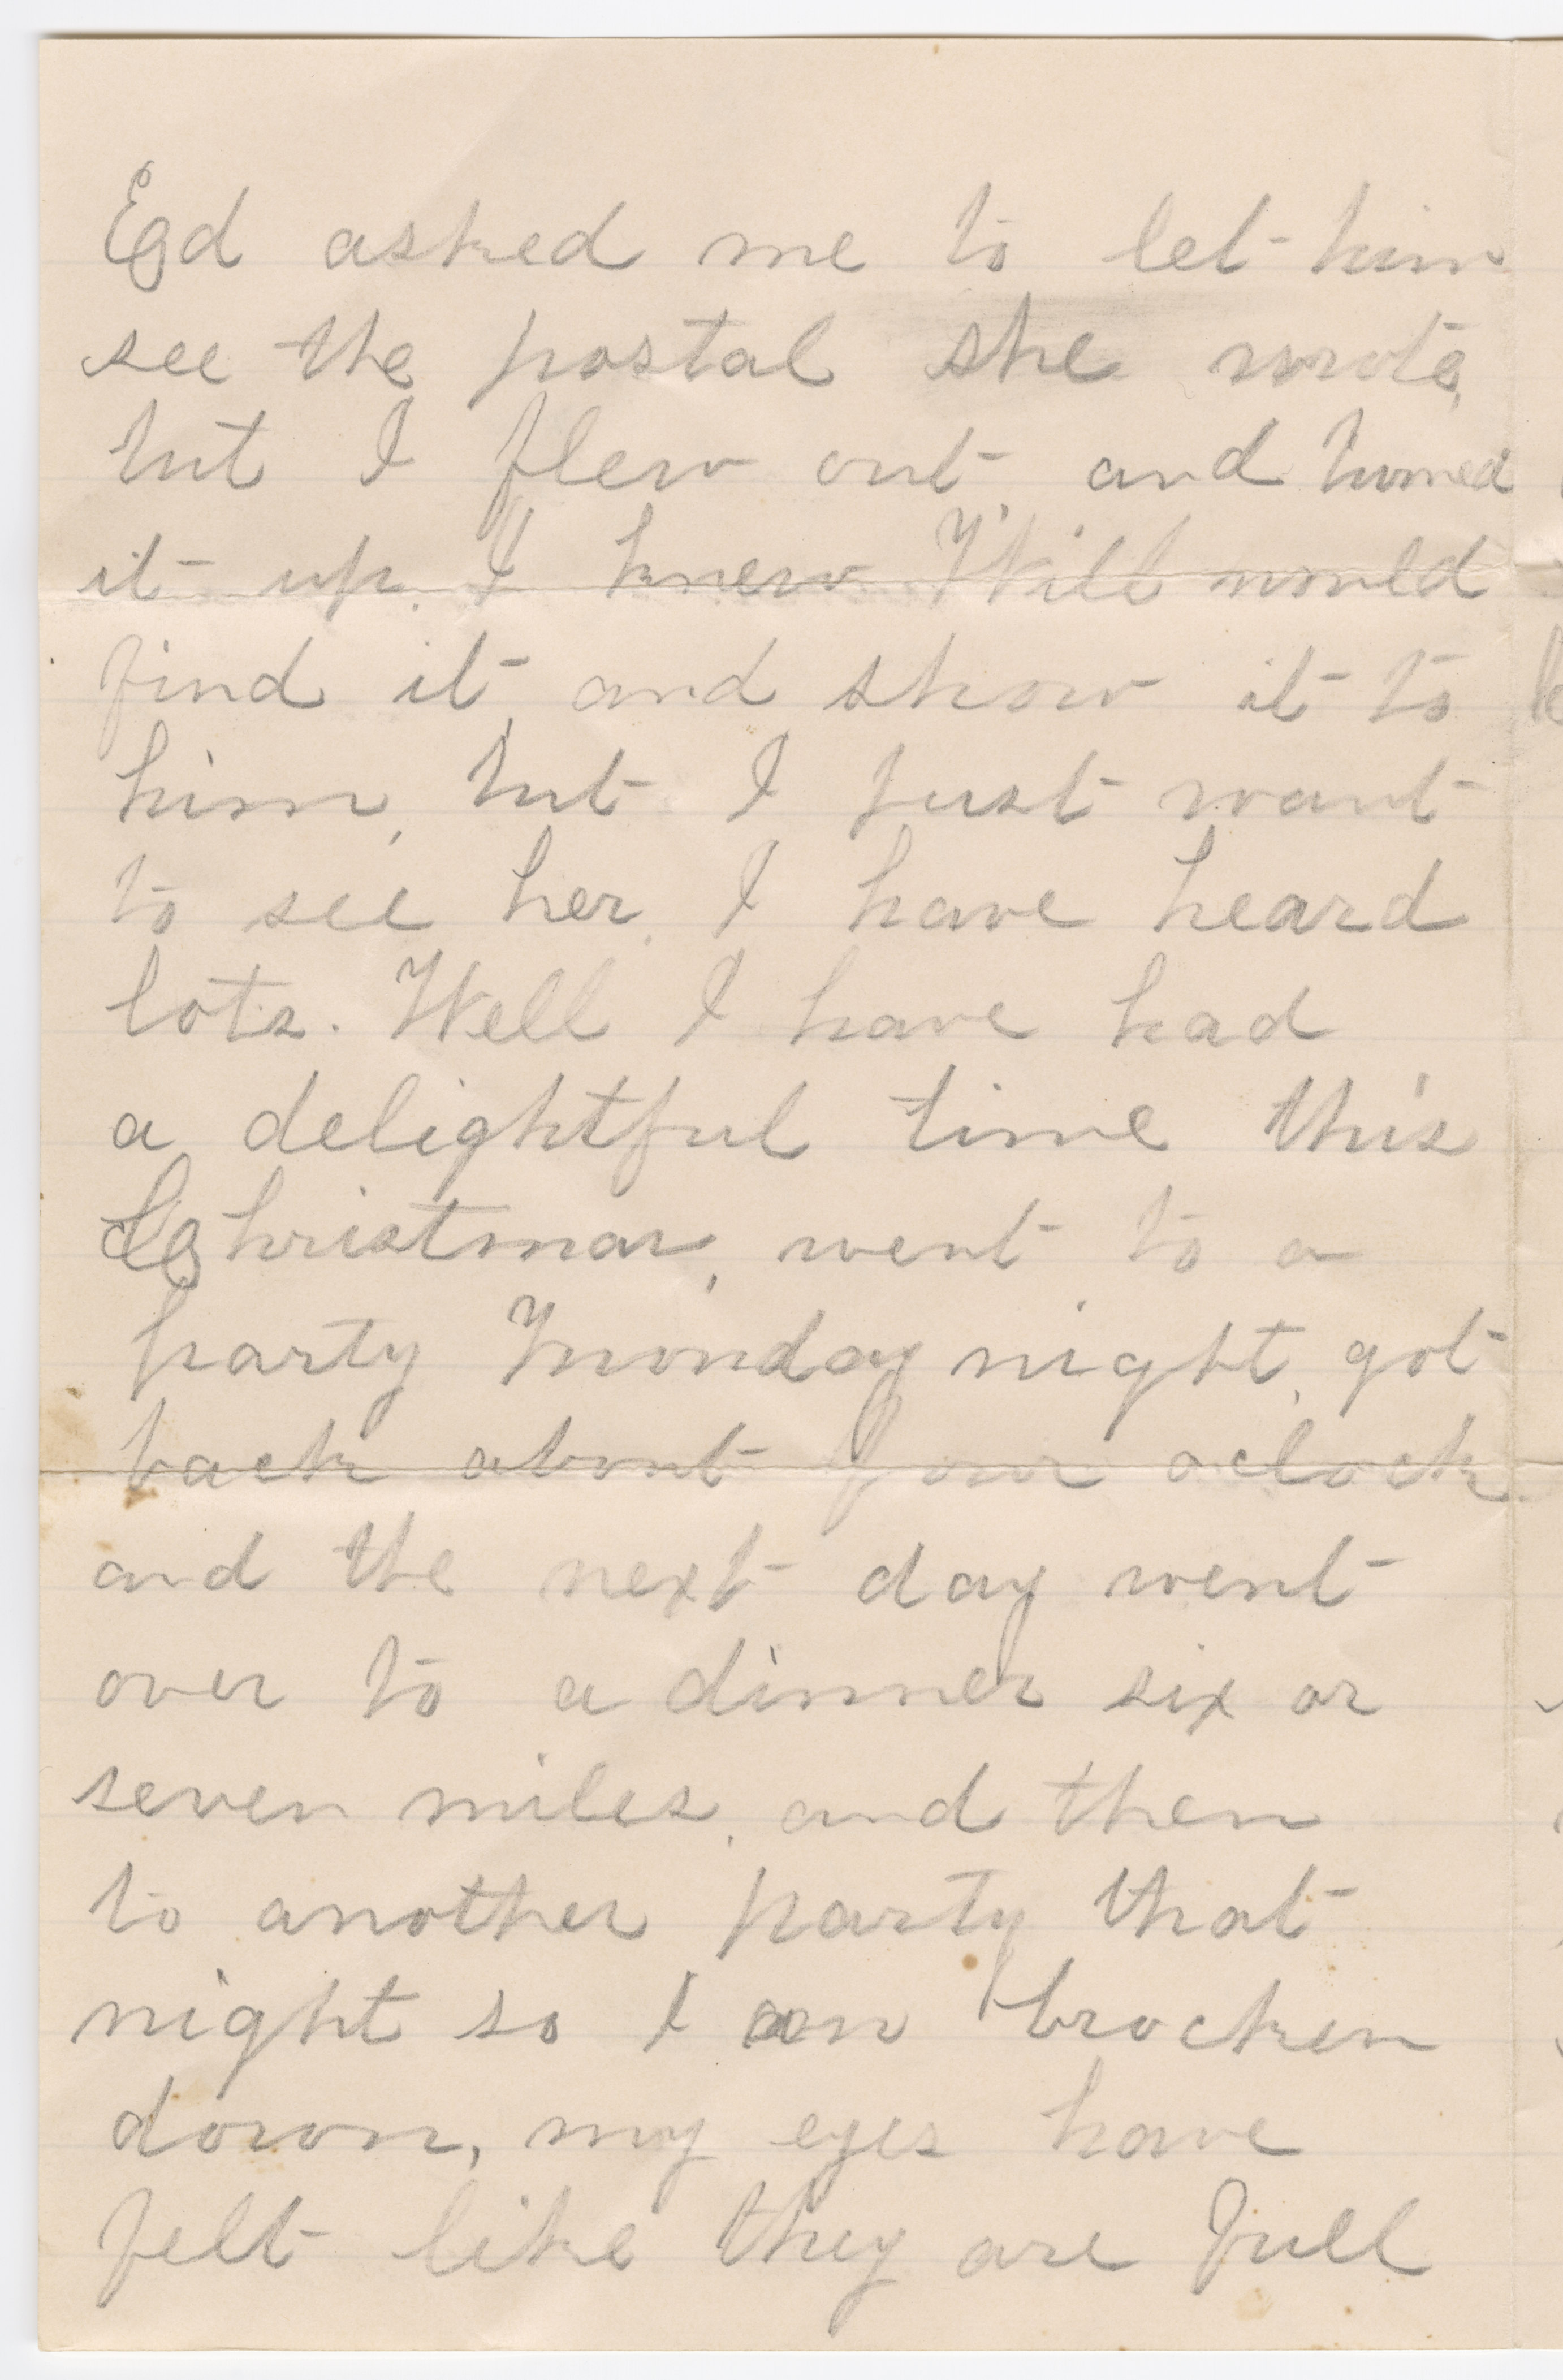 Ed asked me to let him
see the postal she wrote,
but I flew out, and burned
it up. I knew Will would
find it, and show it to
him, but I just want
to see her. I have heard
lots. Well I have had
a delightful time this
Christmas, went to a
party Monday night, got
back about four oclock
and the next day went
over to a dinner six or
seven miles, and then
to another party that
night so I am brocken
down, my eyes have
felt like they are full